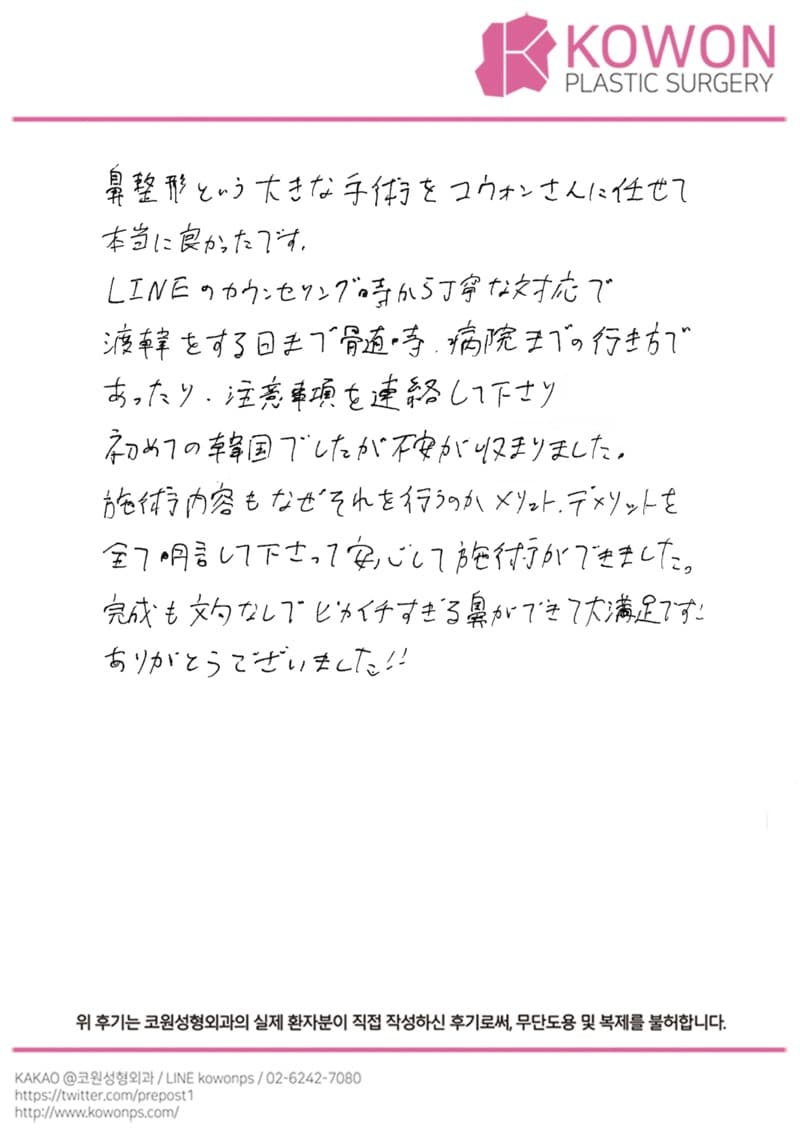 KOWON
PLASTIC SURGERY
鼻整形という大きな手術をコウォンさんに任せて
本当に良かったです.
LINEのカウンセリング時から丁寧な対応で
渡韓をする日まで随時、病院までの行き方で
あったり、注意事項を連絡して下さり
初めての韓国でしたが不安が収まりました。
施術内容もなぜそれを行うのかメリット、デメリットを
全て明言して下さって安心して施術ができました。
完成も文句なしでピカイチすぎる鼻ができて大満足です!
ありがとうございました!!
위 후기는 코원성형외과의 실제 환자분이 직접 작성하신 후기로써, 무단도용 및 복제를 불허합니다.
KAKAO @코원성형외과 / LINE kowonps / 02-6242-7080
https://twitter.com/prepost1
http://www.kowonps.com/